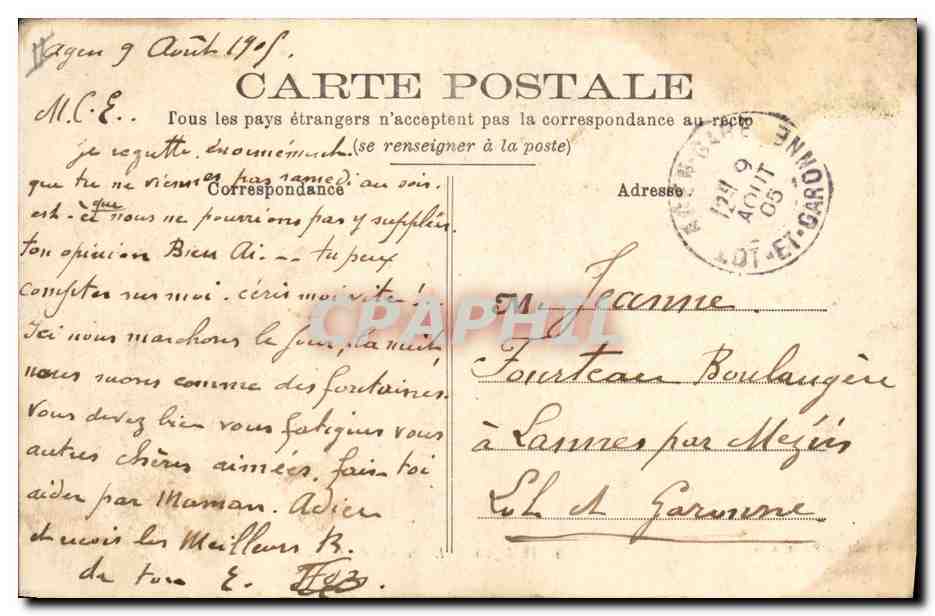 Agen 9 Août 1905.
CARTE POSTALE
Tous les pays étrangers n'acceptent pas la correspondance au recto
(se renseigner à la poste)
Correspondance
Adresse
M.C.E..
je regrette énormément
que tu ne viennes pas samedi au soir.
est-ce que nous ne pourrions pas y suppléer
ton opinion Bien Ai. -- tu peux
compter sur moi. écris moi vite!
Ici nous marchons le jour, la nuit
nous suons comme des fontaines.
vous devez bien vous fatiguer vous
autres chères aimées, fais-toi
aider par Maman. Adieu
et reçois les Meilleurs B.
de ton E.
9
AOUT
05
LOT-ET-GARONNE
CPAPHIL
Jeanne
Fourteau Boulangère
à Lannes par Mézin
Lot et Garonne